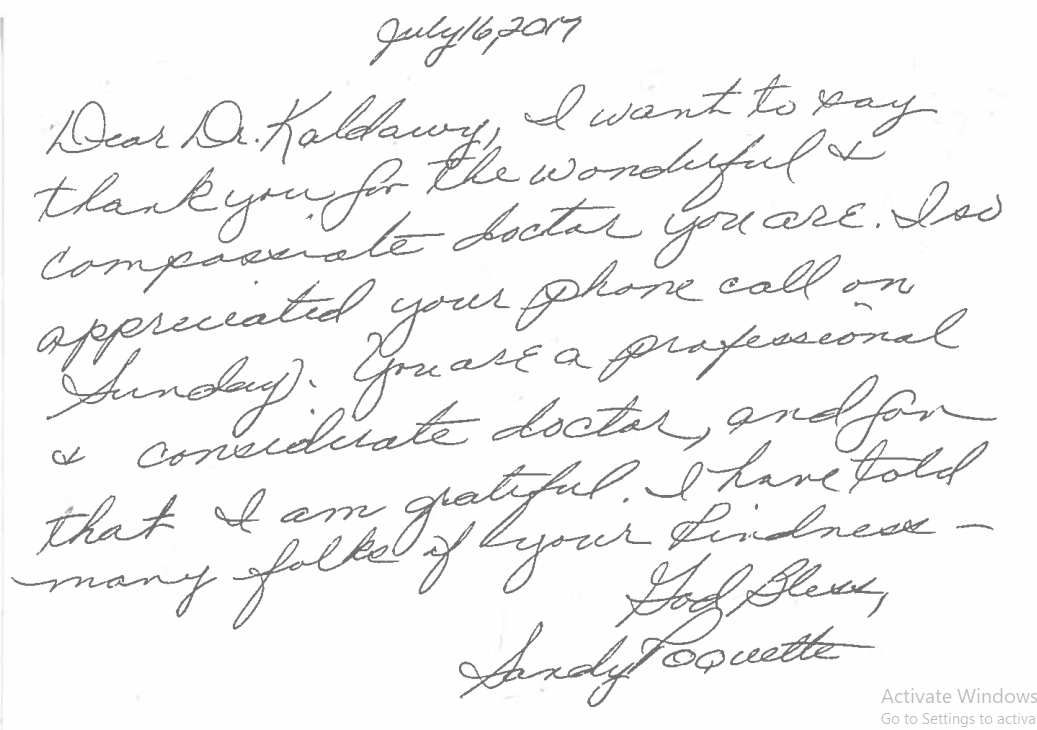 July 16, 2017
Dear Dr. Kaldawy, I want to say
thank you for the wonderful &
compassiate doctor you are. I so
appreciated your phone call on
Sunday. You are a professional
& considerate doctor, and for
that I am grateful. I have told
many folks of your kindness –
God Bless,
Sandy Poquette
Activate Windows
Go to Settings to activa